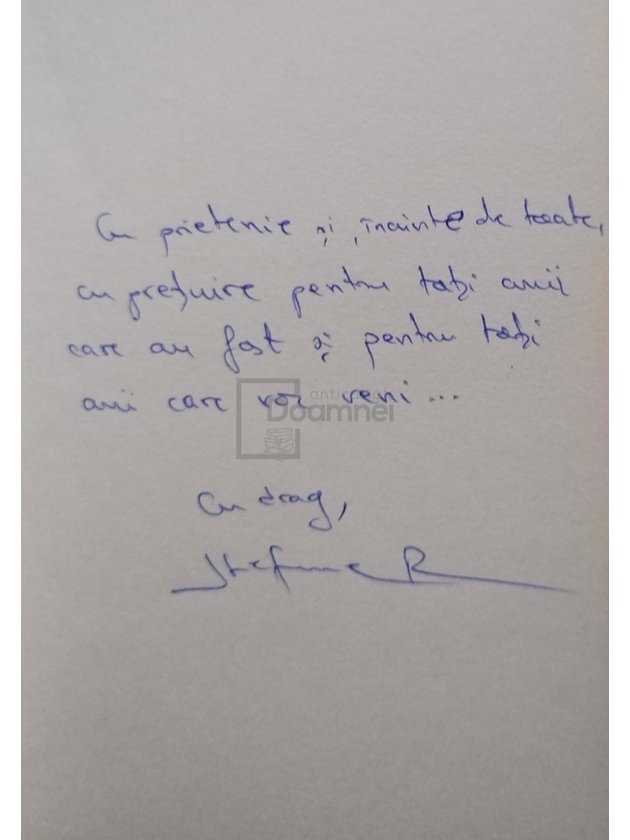 Cu prietenie și, înainte de toate,
cu prețuire pentru toți anii
care au fost și pentru toți
anii care vor veni...
anticariat
Doamnei
Cu drag,